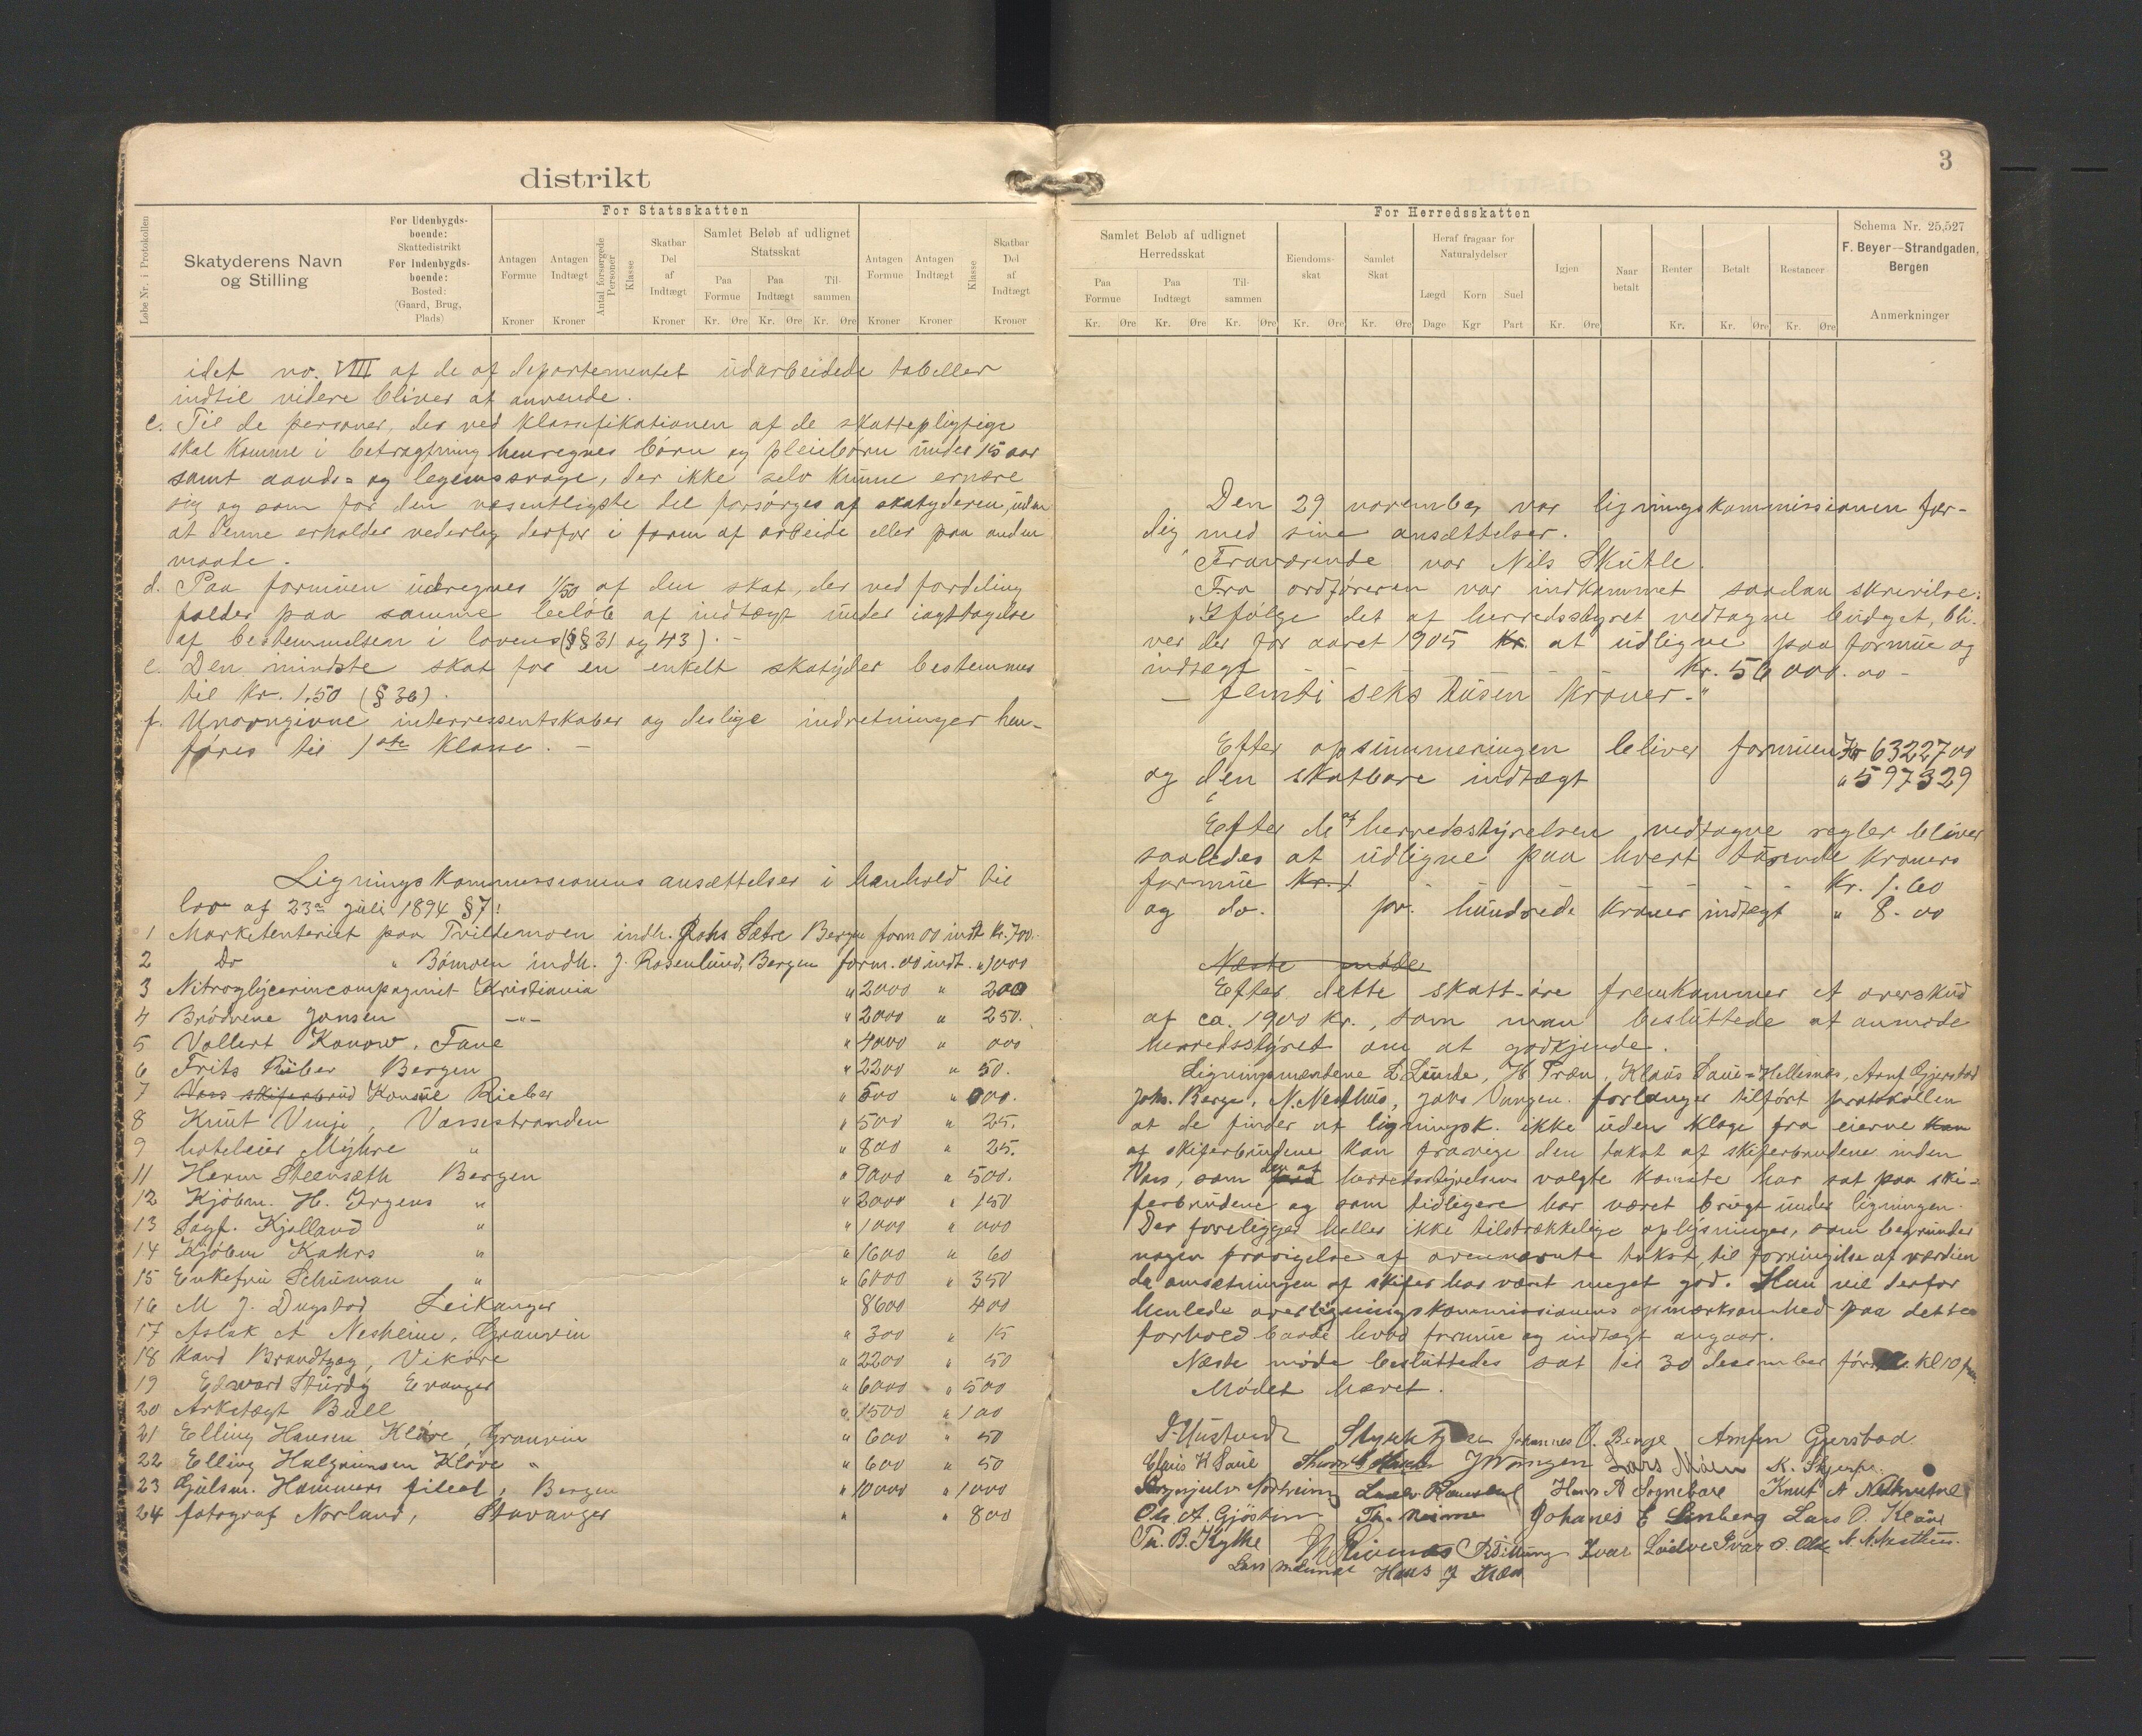 distrikt
Løbe Nr. i Protokollen
Skatyderens Navn
og Stilling
For Udenbygds-
boende:
Skattedistrikt
For Indenbygds-
boende:
Bosted:
(Gaard, Brug,
Plads)
For Statsskatten
Antagen
Formue
Kroner
Antagen
Indtægt
Kroner
Antal forsørgede
Personer
Klasse
Skatbar
Del
af
Indtægt
Kroner
Samlet Beløb af udlignet
Statsskat
Paa
Formue
Paa
Indtægt
Til-
sammen
Kr. Øre Kr. Øre Kr. Øre
Antagen
Formue
Kroner
Antagen
Indtægt
Kroner
Klasse
Skatbar
Del
af
Indtægt
Kroner
idet no. VIII af de af departementet udarbeidede tabeller
indtil videre bliver at anvende.
c. Til de personer, der ved klassifikationen af de skattepligtige
skal komme i betragtning henregnes børn og pleiebørn under 15 aar
samt aands- og legemssvage, der ikke selv kunne ernære
sig og som for den væsentligste del forsørges af skatyderen, uden
at denne erholder vederlag derfor i form af arbeide eller paa anden
maade.
d. Paa formuen udregnes 1/50 af den skat, der ved fordeling
falder paa samme beløb af indtægt under iagttagelse
af bestemmelsen i lovens (§§ 31 og 43). -
e. Den mindste skat for en enkelt skatyder bestemmes
til kr. 1,50 (§ 36).
f. Umyngive interressentskaber og deslige indretninger hen-
føres til 1ste klasse. -
Ligningskommissionens ansættelser i henhold til
lov af 23de juli 1894 § 7:
1 Marketenteriet paa Tvildemoen indh. Johs Sætre Bergen form 00 indt kr. 700.-
2 Do " Bømoen indh. J. Rosenlund, Bergen form. 00 indt. " 1000
3 Nitroglycerincompagniet Kristiania " 2000 " 200
4 Brødrene Jansen -"- " 2000 " 250.
5 Vollert Konow, Fane " 4000 " 000
6 Frits Riber Bergen " 2200 " 50.
7 Voss skiferbrud Konsul Rieber " 500 " 000.
8 Knut Vinje, Vossestranden " 500 " 25.
9 hoteleier Myhre " " 800 " 25.
11 Herm Steenseth Bergen " 9000 " 500.
12 Kjøbm. H. Irgens " " 3000 " 150
13 Sagf. Kjølland " " 1000 " 000
14 Kjøbm Kahrs " " 1600 " 60
15 Enkefru Schuman " " 6000 " 350
16 M J. Dugstad Leikanger 8600 400
17 Aslak A Nesheim, Granvin " 300 " 15
18 Kand Brandtzæg, Vikøre " 2200 " 50
19 Edward Sturdy Evanger " 6000 " 500
20 Arkitægt Bull " 1500 " 100
21 Elling Hansen Kløve, Granvin " 600 " 50
22 Elling Halgrimsen Kløve " " 600 " 50
23 Gulsm. Hammers fileal, Bergen " 10000 " 1000
24 fotograf Norland, Stavanger " " 800
3
For Herredsskatten
Samlet Beløb af udlignet
Herredsskat
Paa
Formue
Paa
Indtægt
Til-
sammen
Kr. Øre Kr. Øre Kr. Øre
Eiendoms-
skat
Kr. Øre
Samlet
Skat
Kr. Øre
Heraf fragaar for
Naturalydelser
Lægd Korn Suel
Dage Kgr Part
Igjen
Kr. Øre
Naar
betalt
Renter
Kr.
Betalt
Kr. Øre
Restancer
Kr. Øre
Schema Nr. 25,527
F. Beyer—Strandgaden,
Bergen
Anmerkninger
Den 29 november var ligningskommissionen fær-
dig med sine ansættelser.
Fraværende var Nils Skutle.
Fra ordføreren var indkommet saadan skrivelse:
"Ifølge det af herredsstyret vedtagne budget, bli-
ver der for aaret 1905 kr. at udligne paa formue og
indtægt - - - - - kr. 56000.00 -
- femti seks tusen kroner."
Efter opsummeringen bliver formuen kr 6322700
og den skatbare indtægt " 597329
Efter de af herredsstyrelsen vedtagne regler bliver
saaledes at udligne paa hvert tusende kroners
formue kr. 1 - - - Kr. 1.60
og do. pr. hundrede kroner indtægt " 8.00
Næste møde
Efter dette skatt-øre fremkommer et overskud
af ca. 1900 kr., som man besluttede at anmode
herredsstyret om at godkjende.
Ligningsmændene L Lunde, H Træn, Klaus Saue-Hellesnes, Arnf Gjerstad
Johs. Berge, N. Nesthus, Jahs Vangen. forlanger tilført protokollen
at de finder at ligningsk. ikke uden klage fra eierne kan
af skiferbrudene kan fravige den takst af skiferbrudene inden
Vos, som den af herredsstyrelsen valgte komite har sat paa ski-
ferbrudene og som tidligere har været brugt under ligningen.
Der foreligger heller ikke tilstrækkelige oplysninger, som begrunder
nogen fravigelse af ovennævnte takst til forringelse af værdien
da omsætningen af skifer har vært meget god. Man vil derfor
henlede overligningskommissionens opmærksomhed paa dette
forhold baade hvad formue og indtægt angaar.
Næste møde besluttedes sat til 30 desember kl 10 fm.
Mødet hævet.
Johannes O. Berge Arnfin Gjerstad
Claus K Saue J Vangen Lars Møen K. Skjerpe.
Hans A Sognebare Knut A
Ole A. Gjøstein Th. Johanes E Lenberg Lars O. Kløve
Th. B. Kyte Ivar Ivar O. N. N. Nesthus.
Lars Hans J Træn